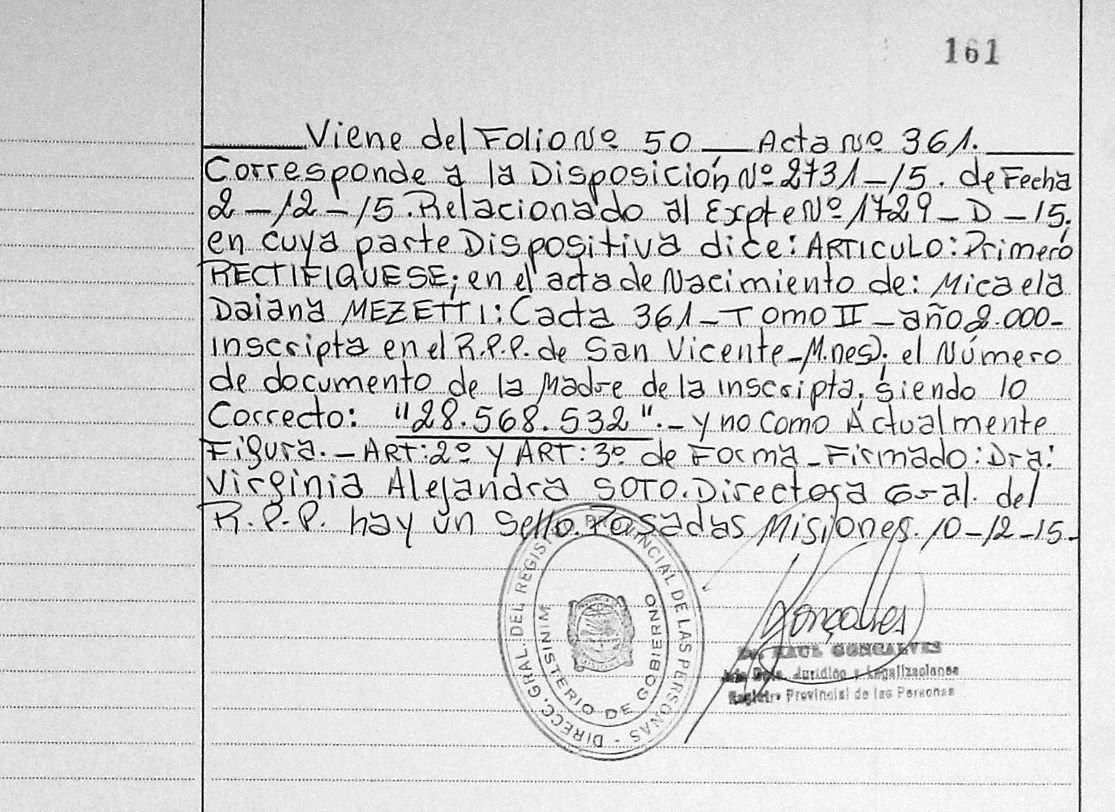 161
Viene del Folio Nº 50 — Acta Nº 361.
Corresponde a la Disposición Nº 2731-15. de Fecha
2-12-15. Relacionado al Expte Nº 1729-D-15;
en cuya parte Dispositiva dice: ARTICULO: Primero
RECTIFIQUESE; en el acta de Nacimiento de: Micaela
Daiana MEZETTI: Cacta 361-Tomo II-año 2.000-
inscripta en el R.P.P. de San Vicente-M.nes); el Número
de documento de la Madre de la inscripta, siendo lo
Correcto: "28.568.532".- y no como Actualmente
Figura.- ART: 2º y ART: 3º de Forma-Firmado: Dra:
Virginia Alejandra SOTO. Directora Gral. del
R.P.P. hay un sello. Posadas Misiones. 10-12-15.-
DIRECC. GRAL. DEL REGISTRO PROVINCIAL DE LAS PERSONAS -
MINISTERIO DE GOBIERNO
Gonçalves
Dr. RAUL GONCALVES
Jefe Dpto. Jurídico y Legalizaciones
Registro Provincial de las Personas